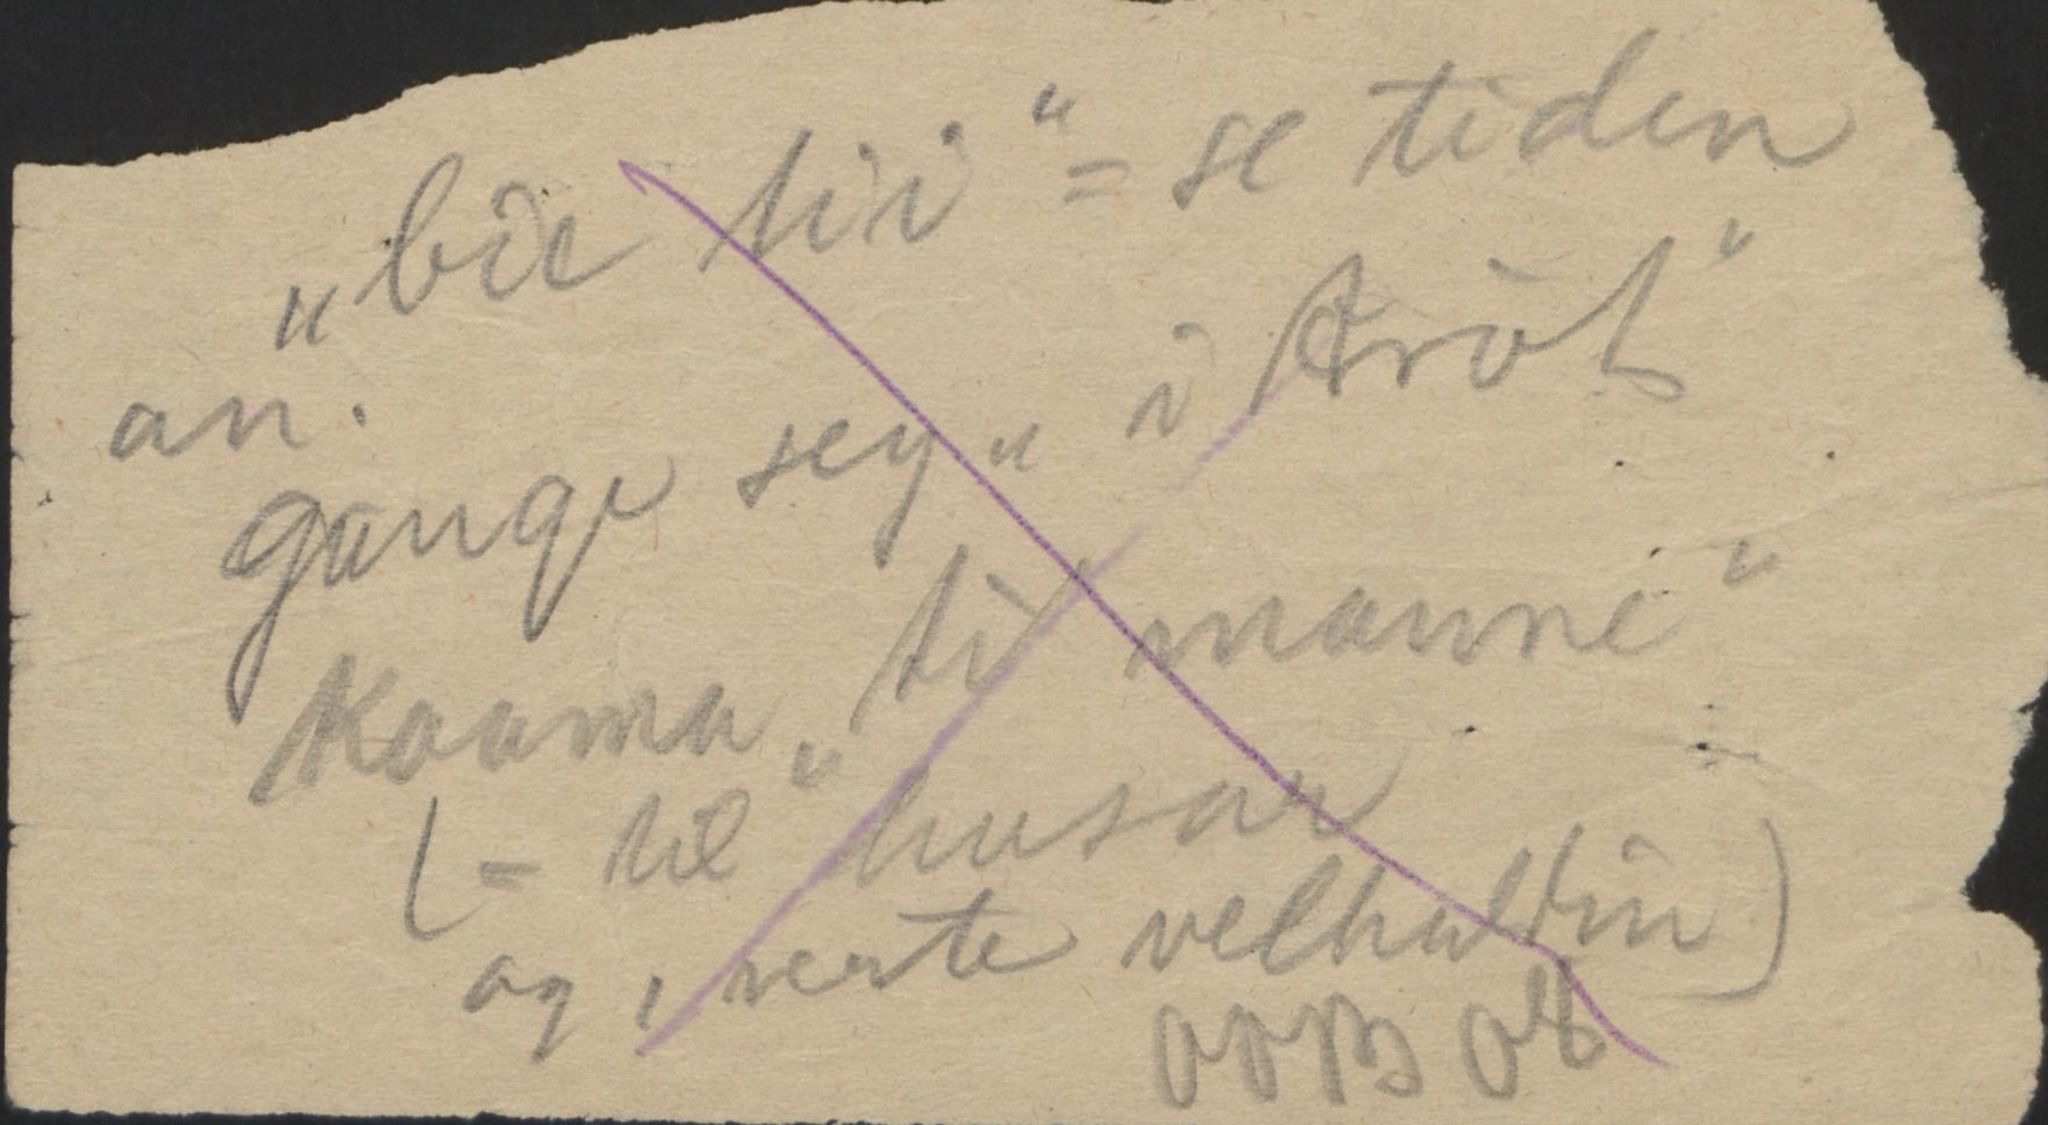 „bie tii“ = se tiden
an.
gange seg „i tröt“
Kaama „ti manne“
(= til husar
og, verte velhalden)